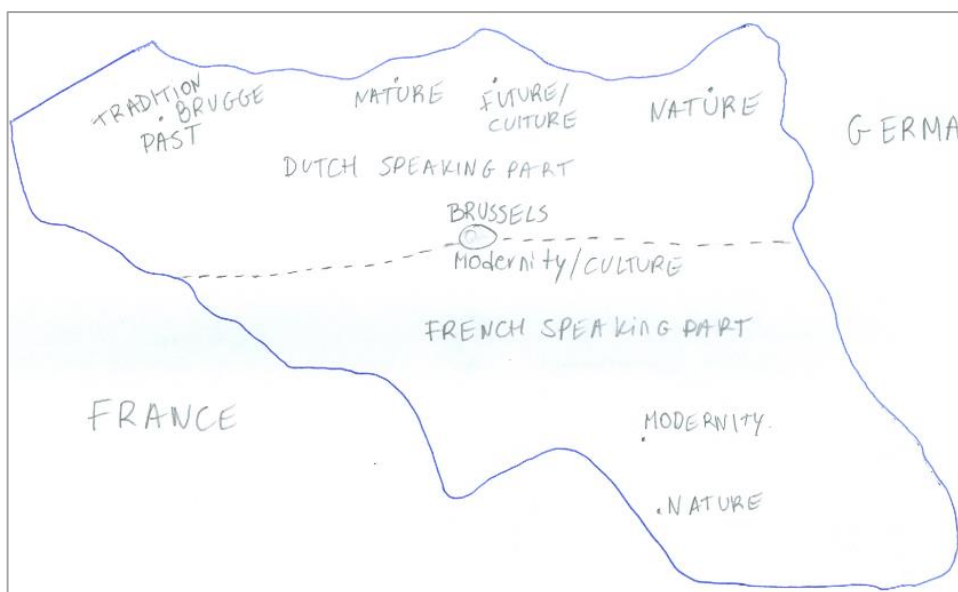 TRADITION
BRUGGE
PAST
NATURE
FUTURE/
CULTURE
NATURE
GERMA
DUTCH SPEAKING PART
BRUSSELS
Modernity/CULTURE
FRENCH SPEAKING PART
FRANCE
MODERNITY.
NATURE